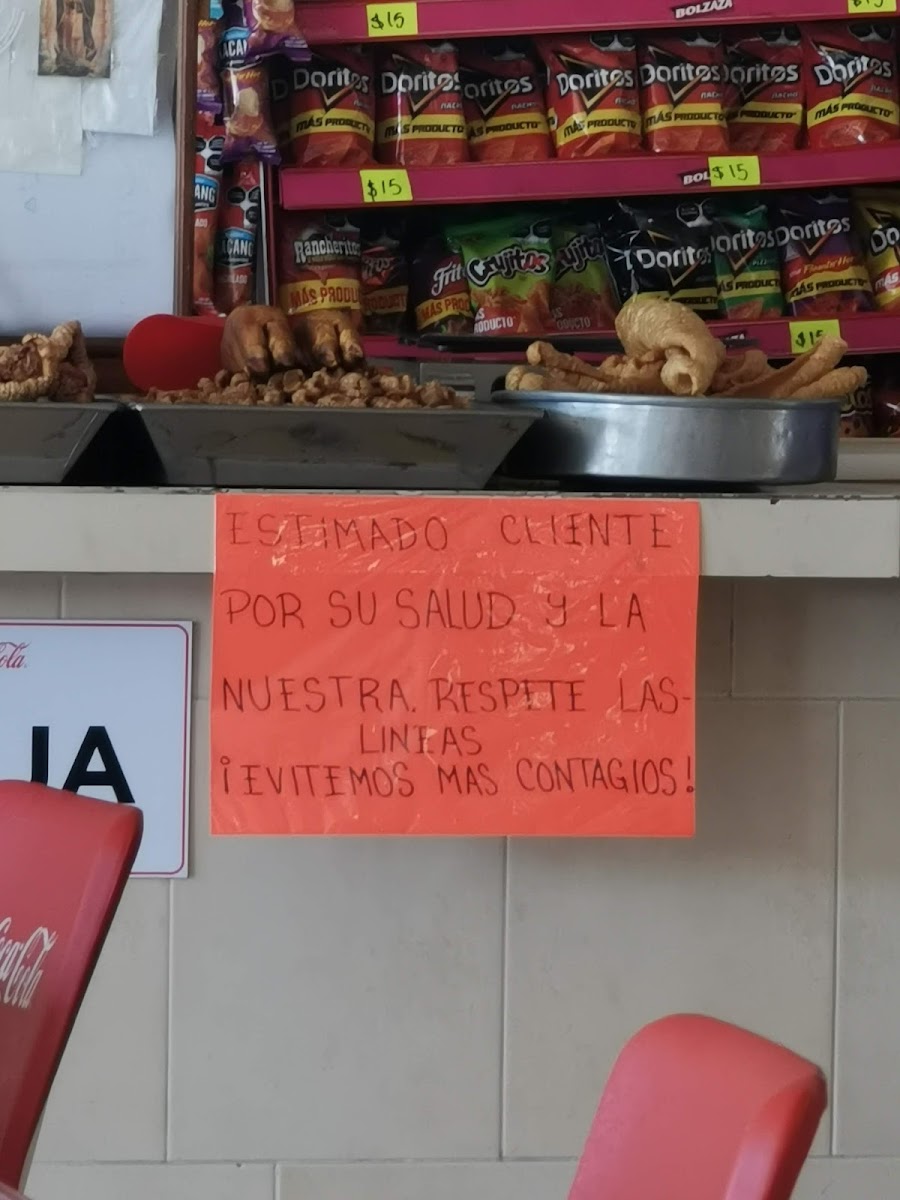 $15
BOLZAZA
$15
Doritos Doritos Doritos Doritos Doritos Doritos Doritos
NACHO
MÁS PRODUCTO MÁS PRODUCTO MÁS PRODUCTO MÁS PRODUCTO MÁS PRODUCTO MÁS PRODUCTO MÁS PRODUCTO
$15
BOL
$15
Rancheritos
MÁS PRODU
Frit
MÁS PRO
Crujitos
PRODUCTO
ujitos
PRODUCTO
Dorito
MÁS PRODUCTO
oritos
MÁS PRODUCTO
Doritos
Flamin Hot
MÁS PRODUCTO
Do
$15
ESTIMADO CLIENTE
POR SU SALUD Y LA
NUESTRA. RESPETE LAS-
LINEAS
¡EVITEMOS MAS CONTAGIOS!
Cola
JA
Coca-Cola